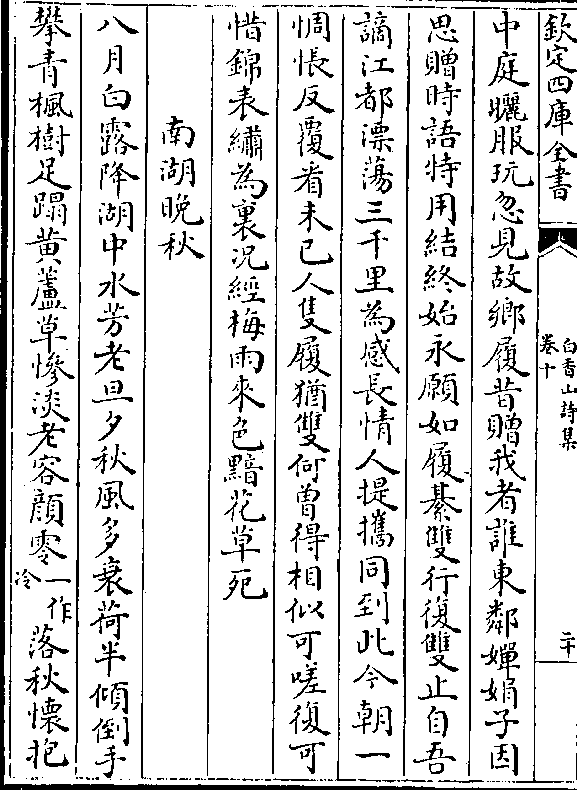 欽定四庫全書
白香山詩集
卷十
二十
中庭曬服玩忽見故鄉履昔贈我者誰東鄰嬋娟子因
思贈時語特用結終始永願如履綦雙行復雙止自吾
謫江都漂蕩三千里為感長情人提攜同到此今朝一
惆悵反覆看未已人隻履猶雙何曾得相似可嗟復可
惜錦表繡為裏况經梅雨來色黯花草死
南湖晚秋
八月白露降湖中水芳老旦夕秋風多衰荷半傾倒手
攀青楓樹足蹋黄蘆草慘淡老容顔零一作冷落秋懷抱